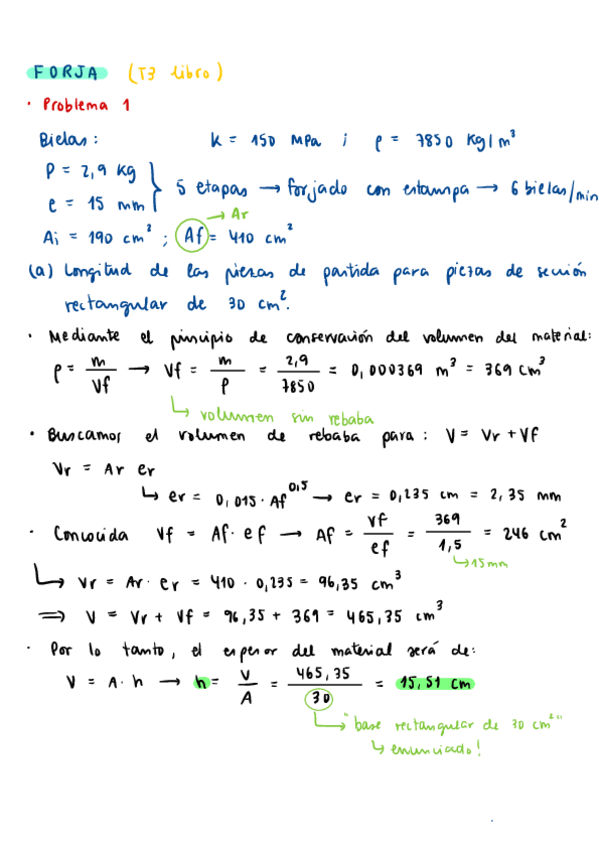 FORJA (T3 libro)
· Problema 1
Bielas: K = 150 MPa ; ρ = 7850 Kg/m³
P = 2,9 Kg
e = 15 mm
5 etapas → forjado con estampa → 6 bielas/min
→ Ar
Ai = 190 cm² ; Af = 410 cm²
(a) Longitud de las piezas de partida para piezas de sección
rectangular de 30 cm².
· Mediante el principio de conservación del volumen del material:
ρ = m/Vf → Vf = m/ρ = 2,9/7850 = 0,000369 m³ = 369 cm³
↳ volumen sin rebaba
· Buscamos el volumen de rebaba para: V = Vr + Vf
Vr = Ar er
↳ er = 0,015 · Af^0,5 → er = 0,235 cm = 2,35 mm
· Conocida Vf = Af · ef → Af = Vf/ef = 369/1,5 = 246 cm²
↳ 15 mm
↳ Vr = Ar · er = 410 · 0,235 = 96,35 cm³
⇒ V = Vr + Vf = 96,35 + 369 = 465,35 cm³
· Por lo tanto, el espesor del material será de:
V = A · h → h = V/A = 465,35/30 = 15,51 cm
↳ "base rectangular de 30 cm²"
↳ enunciado!